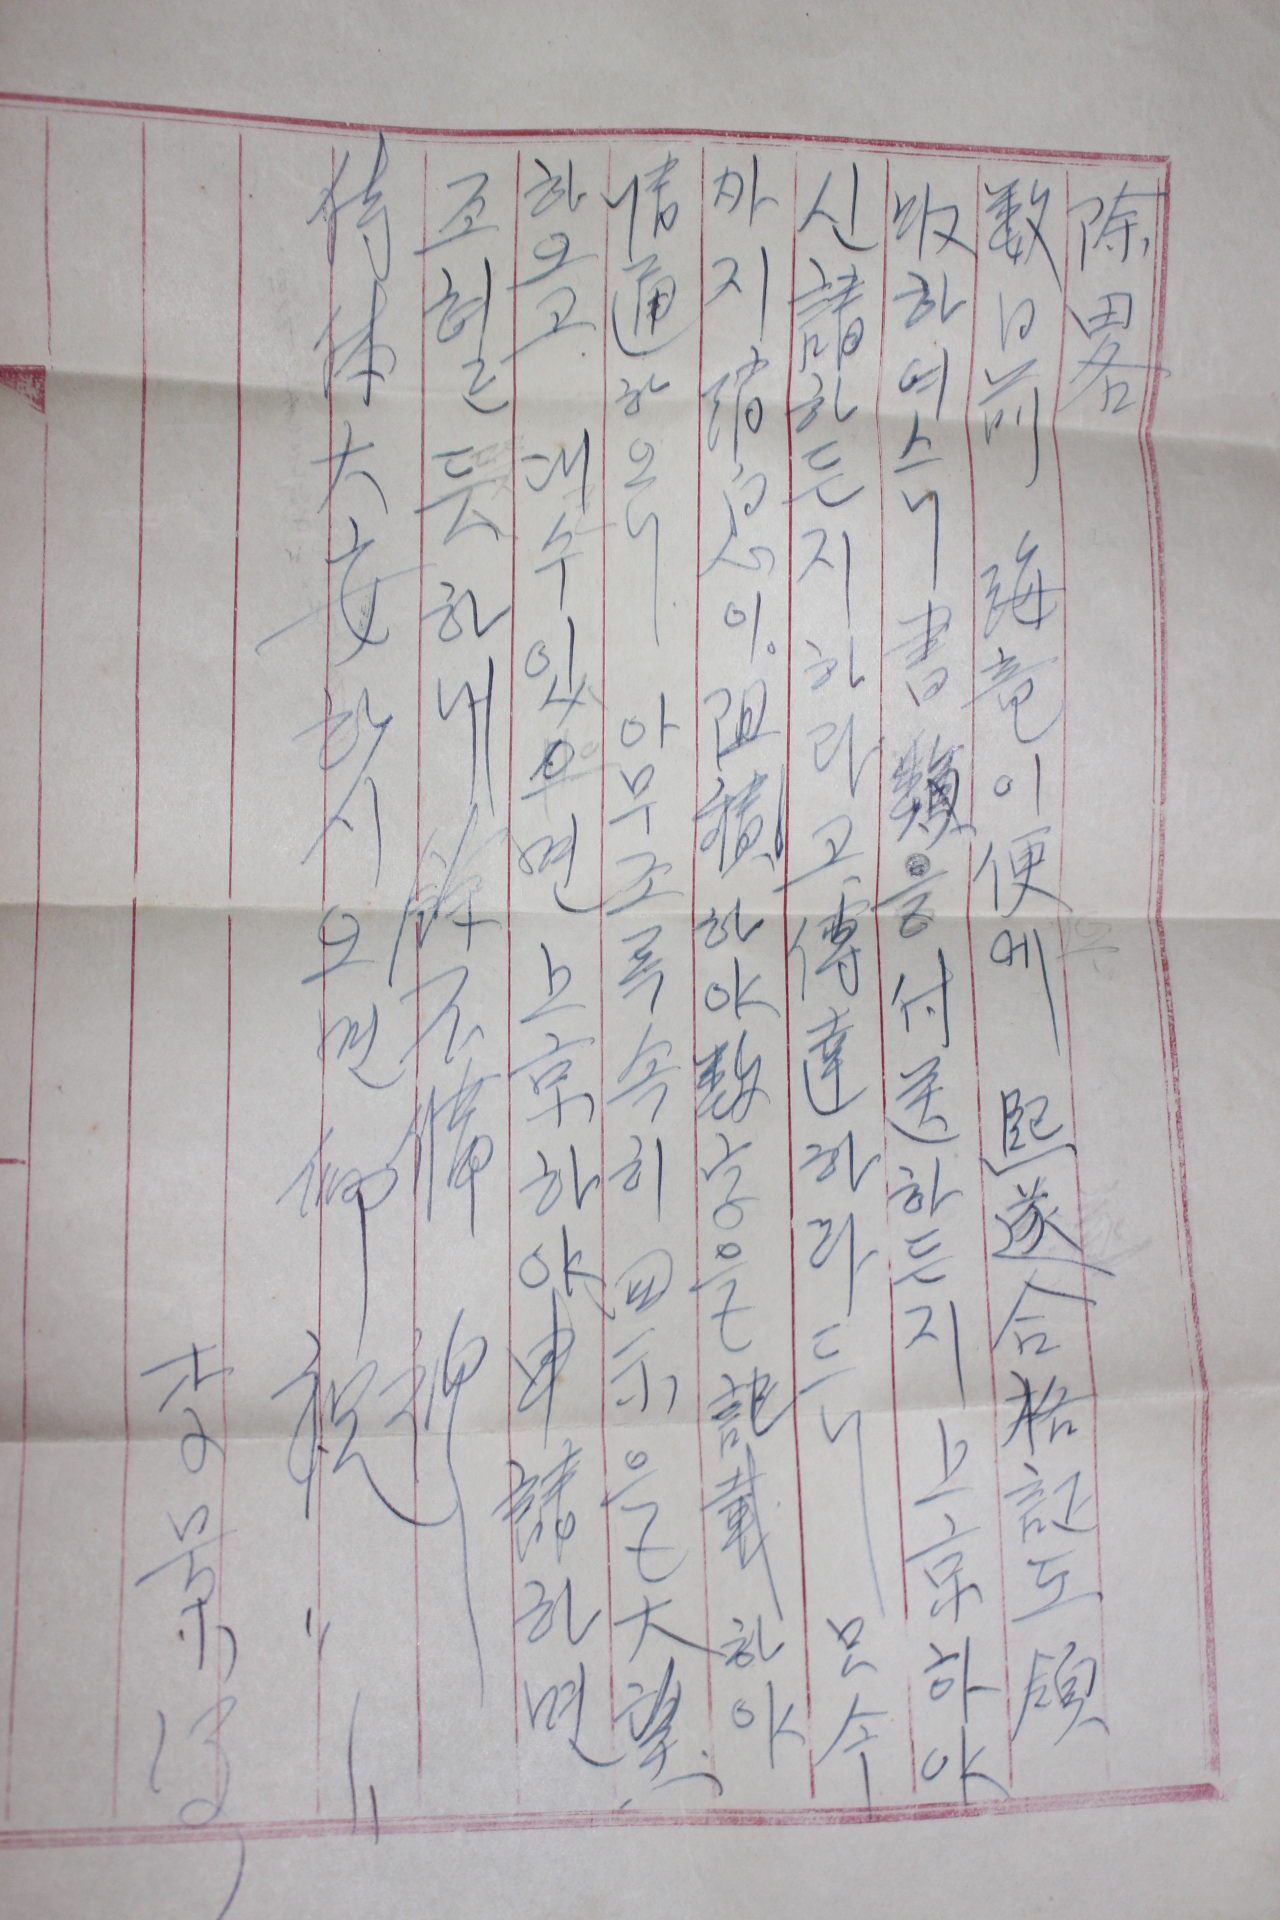 除畧
数日前 海竜이便에 熙遂合格証도領
收하여스니 書類을付送하든지 上京하야
신請하든지하라고 傳達하라드니 므슨
까지消息이 阻積하야 数字을記載하야
情通하오니 아무조록 속히 回示을大望
하오고 대수있으면 上京하야申請하면
조흘듯하내 餘不備
侍体大安하시오면 仰祝
李景